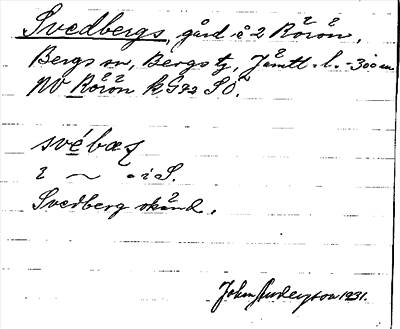 Svedbergs, gård å 2 Rörön,
Bergs sn, Bergs tg, Jämtl. l. - 300 m
NV Rörön kG 92 SO.
svébæʒ
2 ~ . i S.
Svedberg okänd.
John Anderson 1931.